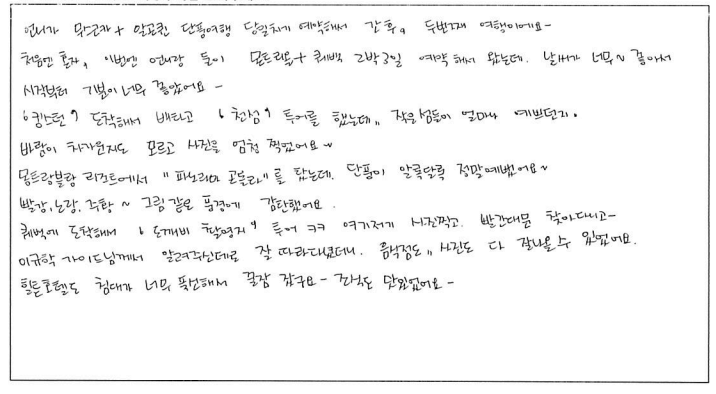 언니가 무스코카 + 알곤퀸 단풍여행 당일치기 예약해서 간 후, 두번째 여행이에요-
처음엔 혼자, 이번엔 언니랑 둘이 몬트리올 + 퀘백 2박3일 예약해서 왔는데. 날씨가 너무~ 좋아서
시작부터 기분이 너무 좋았어요 -
'킹스턴' 도착해서 배타고 '천섬' 투어를 했는데,, 작은섬들이 얼마나 예쁘던지.
바람이 차가운지도 모르고 사진을 엄청 찍었어요~
몽트랑블랑 리조트에서 "파노라마 곤돌라"를 탔는데. 단풍이 알록달록 정말예뻤어요~
빨강, 노랑, 주황 ~ 그림 같은 풍경에 감탄했어요.
퀘벡에 도착해서 '도깨비 촬영지' 투어 ㅋㅋ 여기저기 사진찍고. 빨간대문 찾아다니고-
이규학 가이드님께서 알려주신데로 잘 따라다녔더니. 음식점도,, 사진도 다 잘나올수 있었어요.
힐튼호텔도 침대가 너무 푹신해서 꿀잠 잤구요- 조식도 맛있었어요-